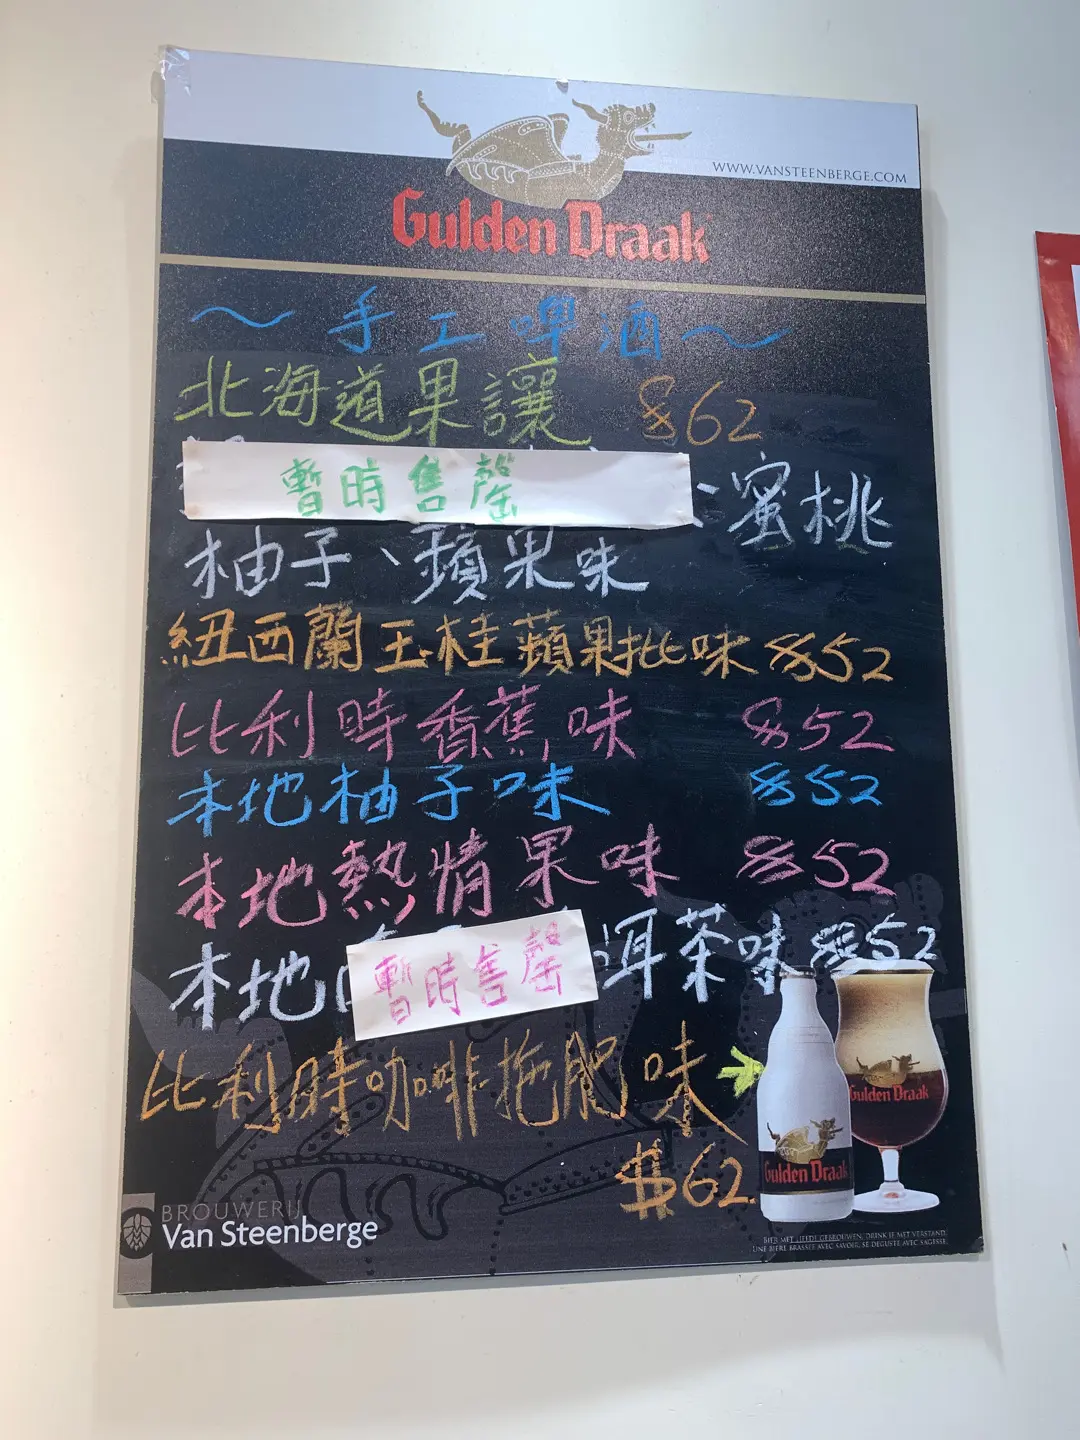 WWW.VANSTEENBERGE.COM
Gulden Draak
~手工啤酒~
北海道果讓 $62
暫時售罄
、蜜桃
柚子、蘋果味
紐西蘭玉桂蘋果批味 $52
比利時香蕉味 $52
本地柚子味 $52
本地熱情果味 $52
本地 暫時售罄 洱茶味 $52
比利時咖啡拖肥味
$62
Gulden Draak
Gulden Draak
BROUWERIJ
Van Steenberge
BIER MET LIEFDE GEBROUWEN, DRINK JE MET VERSTAND.
UNE BIERE BRASSEE AVEC SAVOIR, SE DEGUSTE AVEC SAGESSE.